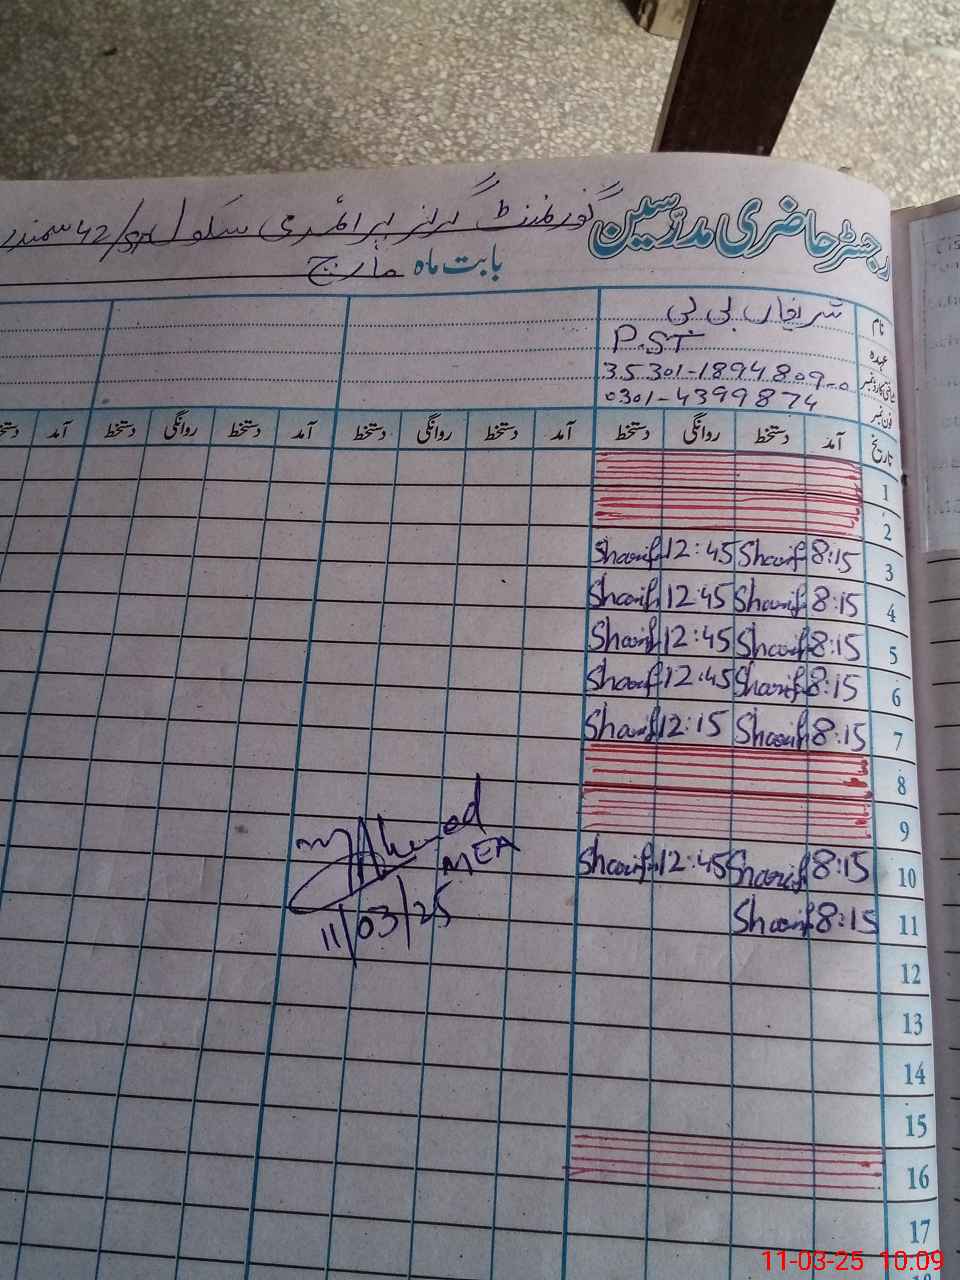 رجسٹر حاضری مدرسین گورنمنٹ گرلز پرائمری سکول 42/ سمندر
بابت ماہ مارچ
نام شریفاں بی بی
عہدہ P.ST
شناختی کارڈ نمبر 35301-1894809-0
فون نمبر 0301-4399874
تاریخ آمد دستخط روانگی دستخط آمد دستخط روانگی دستخط آمد دستخط روانگی دستخط آمد
1
2
3 8:15 Sharif 12:45 Sharif
4 8:15 Sharif 12:45 Sharif
5 8:15 Sharif 12:45 Sharif
6 8:15 Sharif 12:45 Sharif
7 8:15 Sharif 12:15 Sharif
8
9
10 8:15 Sharif 12:45 Sharif
11 8:15 Sharif
12
13
14
15
16
17
MEA
11/03/25
11-03-25 10.09